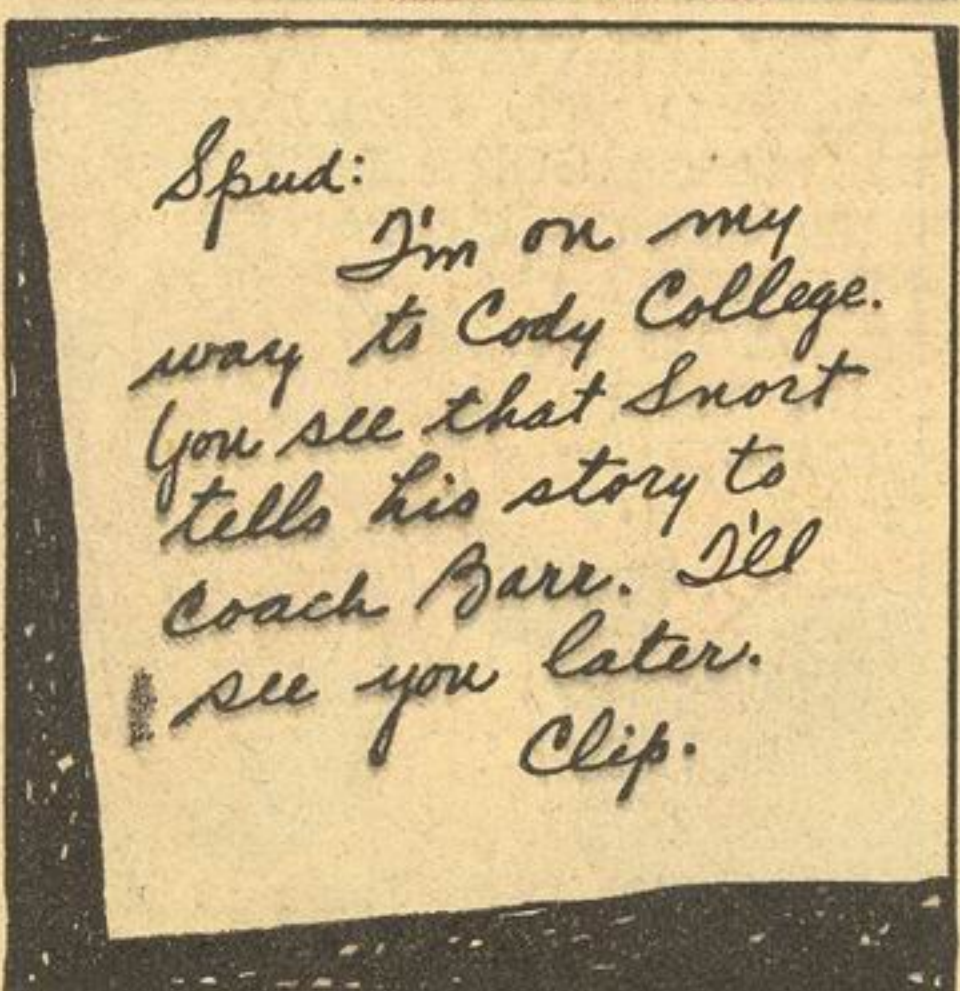 Spud:
I'm on my
way to Cody College.
You see that Snort
tells his story to
Coach Barr. I'll
see you later.
Clip.